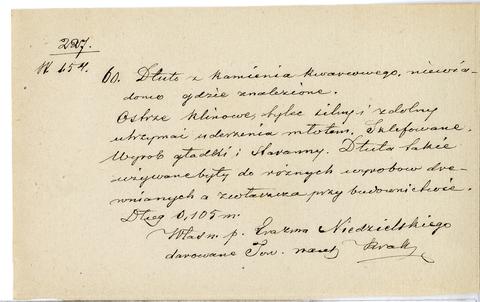 227.
N 154.
60. Dłuto z kamienia kwarcowego, niewia-
domo gdzie znalezione.
Ostrze klinowe, tylec silny i zdolny
utrzymać uderzenia młotem. Szlifowane.
Wyrób gładki i staranny. Dłuta takie
używane były do różnych wyrobów dre-
wnianych a zwłaszcza przy budownictwie.
Dług 0,105 m.
Własn. p. Erazma Niedzielskiego
darowane Tow. nauk Krak